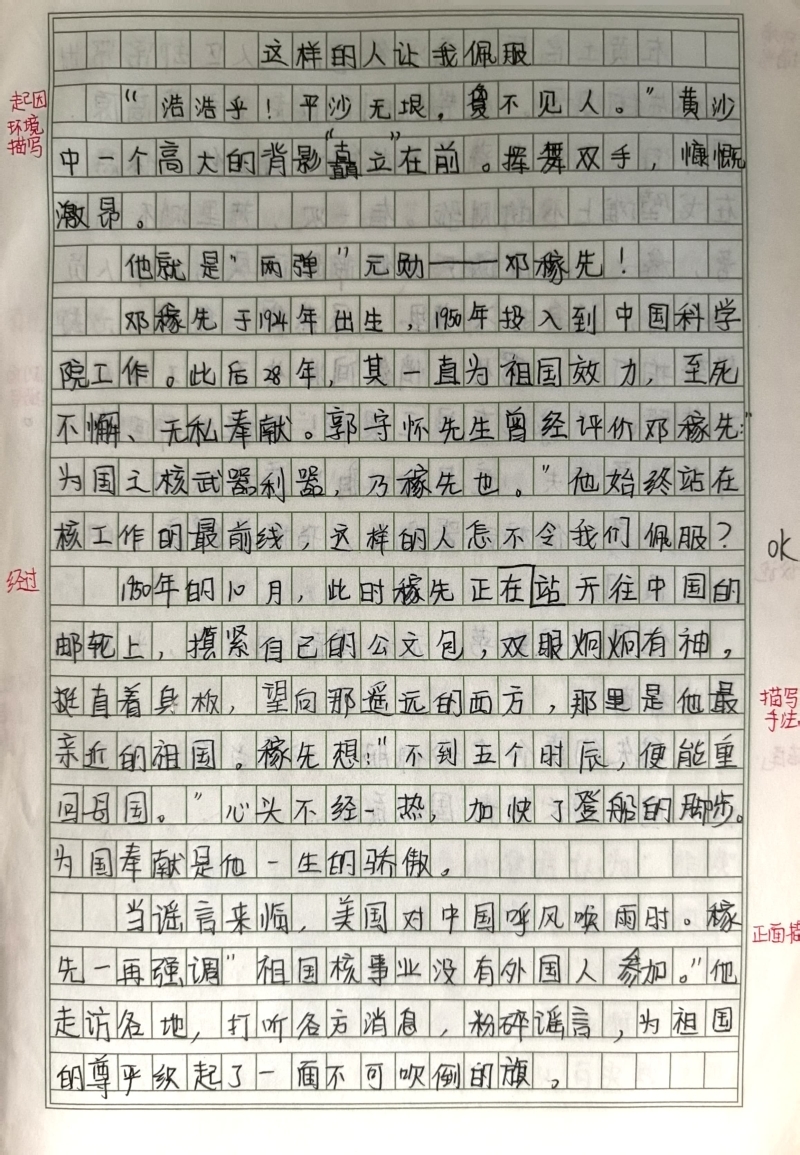 这样的人让我佩服
起因
环境
描写
“浩浩乎！平沙无垠，夐不见人。”黄沙
中一个高大的背影“矗立”在前。挥舞双手，慷慨
激昂。
他就是“两弹”元勋——邓稼先！
邓稼先于1924年出生，1950年投入到中国科学
院工作。此后28年，其一直为祖国效力，至死
不懈、无私奉献。郭守怀先生曾经评价邓稼先：“
为国之核武器利器，乃稼先也。”他始终站在
核工作的最前线，这样的人怎不令我们佩服？
OK
经过
1950年的10月，此时稼先正在站开往中国的
邮轮上，攥紧自己的公文包，双眼炯炯有神。
挺直着身板，望向那遥远的西方，那里是他最
描写
手法
亲近的祖国。稼先想：“不到五个时辰，便能重
回母国。”心头不经一热，加快了登船的脚步。
为国奉献是他一生的骄傲。
当谣言来临，美国对中国呼风唤雨时。稼
正面描
先一再强调“祖国核事业没有外国人参加。”他
走访各地，打听各方消息，粉碎谣言，为祖国
的尊严织起了一面不可吹倒的旗。